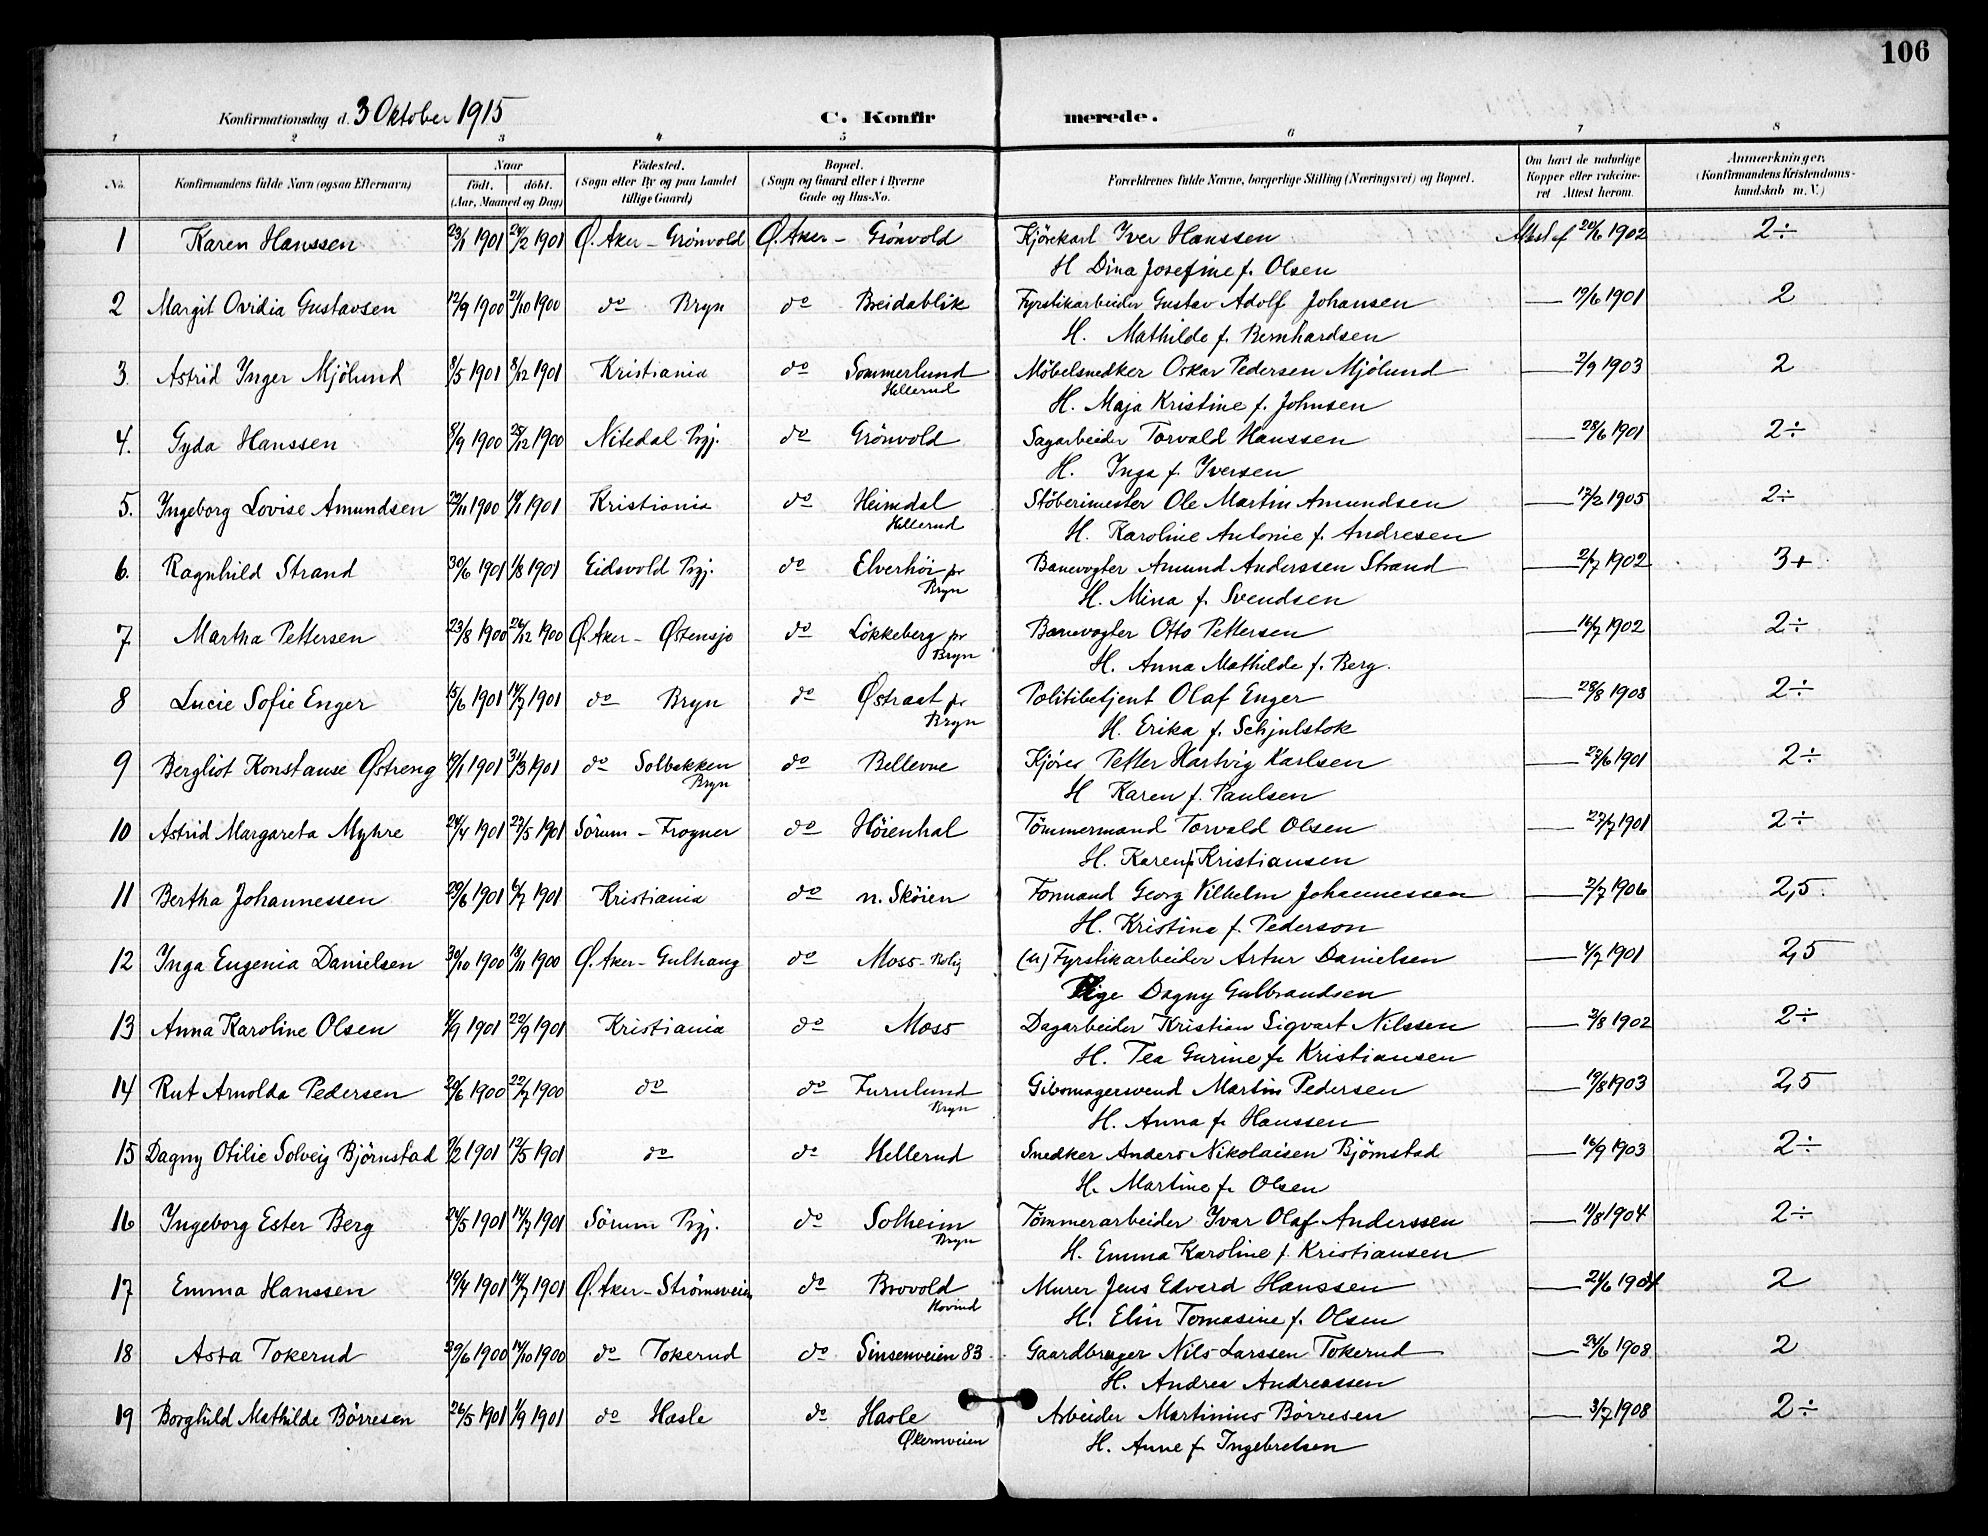 106
Konfirmationsdag d. 3 Oktober 1915 C. Konfirmerede.
1 2 3 4 5 6 7 8
No. Konfirmandens fulde Navn (ogsaa Efternavn) Naar født. døbt. (Aar, Maaned og Dag) Fødested. (Sogn eller By og paa Landet tillige Gaard) Bopæl. (Sogn og Gaard eller i Byerne Gade og Hus-No. Forældrenes fulde Navne, borgerlige Stilling (Næringsvei) og Bopæl. Om havt de naturlige Kopper eller vaccineret Attest herom. Anmærkninger. (Konfirmandens Kristendomskundskab m. V.)
1 Karen Hanssen 23/1 1901 24/2 1901 Ø. Aker - Grönvold Ø. Aker - Grönvold Kjörekarl Iver Hanssen Attest af 20/6 1902 2÷
H Dina Josefine f. Olsen
2 Margit Ovidia Gustavsen 12/9 1900 21/10 1900 do Bryn do Breidablik Fyrstikarbeider Gustav Adolf Johansen — 19/6 1901 2
H. Mathilde f. Bernhardsen
3. Astrid Inger Mjölund 8/5 1901 8/12 1901 Kristiania do Sommerlund Möbelsnedker Oskar Pedersen Mjölund — 2/9 1903 2
Hellerud
H. Maja Kristine f. Johnsen
4. Gyda Hanssen 8/9 1900 25/12 1900 Nitedal Prgj. do Grönvold Sagarbeider Torvald Hanssen — 28/6 1901 2÷
H. Inga f. Iversen
5. Ingeborg Lovise Amundsen 29/11 1900 /1 1901 Kristiania do Heimdal Stöberimester Ole Martin Amundsen — 17/2 1905 2÷
Hellerud
H. Karoline Antonie f. Andresen
6. Ragnhild Strand 30/6 1901 1/8 1901 Eidsvold Prgj. do Elverhöi pr Banevogter Amund Anderssen Strand — 2/7 1902 3+
Bryn
H. Mina f. Svendsen
7 Martha Pettersen 23/8 1900 26/12 1900 Ø. Aker - Østensjo do Lökkeberg pr Banevogter Otto Pettersen — 16/7 1902 2÷
Bryn
H. Anna Mathilde f. Berg.
8 Lucie Sofie Enger 15/6 1901 14/7 1901 do Bryn do Østraat pr Politibetjent Olaf Enger — 28/8 1908 2÷
Bryn
H. Erika f. Schjulstok
9 Bergliot Konstanse Østreng 19/1 1901 31/3 1901 do Solbakken do Bellevue Kjörer Petter Hartvig Karlsen — 27/6 1901 2÷
Bryn
H Karen f. Paulsen
10 Astrid Margareta Myhre 24/4 1901 27/5 1901 Sörum - Frogner do Höienhal Tömmermand Torvald Olsen — 27/7 1901 2÷
H. Karen f. Kristiansen
11 Bertha Johannessen 20/6 1901 /7 1901 Kristiania do n. Sköien Formand Georg Vilhelm Johannessen — 2/7 1906 2,5
H. Kristina f. Pederson
12 Inga Eugenia Danielsen 30/10 1900 18/11 1900 Ø. Aker - Gulhaug do Moss-Bolig (u) Fyrstikarbeider Artur Danielsen — 4/7 1901 2,5
Pige Dagny Gulbrandsen
13 Anna Karoline Olsen /9 1901 29/9 1901 Kristiania do Moss Dagarbeider Kristian Sigvart Nilssen — 2/8 1902 2÷
H. Tea Gurine f. Kristiansen
14 Rut Arnolda Pedersen 20/6 1900 22/7 1900 do do Furulund Gibsmagersvend Martin Pedersen — 19/8 1903 2,5
Bryn
H. Anna f. Hanssen
15 Dagny Otilie Solveig Björnstad /2 1901 12/5 1901 do do Hellerud Snedker Anders Nikolaisen Björnstad — 16/9 1903 2÷
H. Martine f. Olsen
16 Ingeborg Ester Berg 24/5 1901 14/7 1901 Sörum Prgj. do Solheim Tömmerarbeider Ivar Olaf Anderssen — 11/8 1904 2÷
Bryn
H. Emma Karoline f. Kristiansen
17 Emma Hanssen 19/4 1901 14/7 1901 Ø. Aker - Strömsveien do Brovold Murer Jens Edvard Hanssen — 21/6 1904 2
Hovind
H. Elin Tomasine f. Olsen
18 Asta Tokerud 30/6 1900 14/10 1900 do Tokerud do Sinsenveien 83 Gaardbruger Nils Larssen Tokerud — 24/6 1908 2
H. Andrea Andreassen
19 Borghild Mathilde Börresen 26/5 1901 1/9 1901 do Hasle do Hasle Arbeider Martinius Börresen — 3/7 1908 2÷
Økernveien
H. Anne f. Ingebretsen